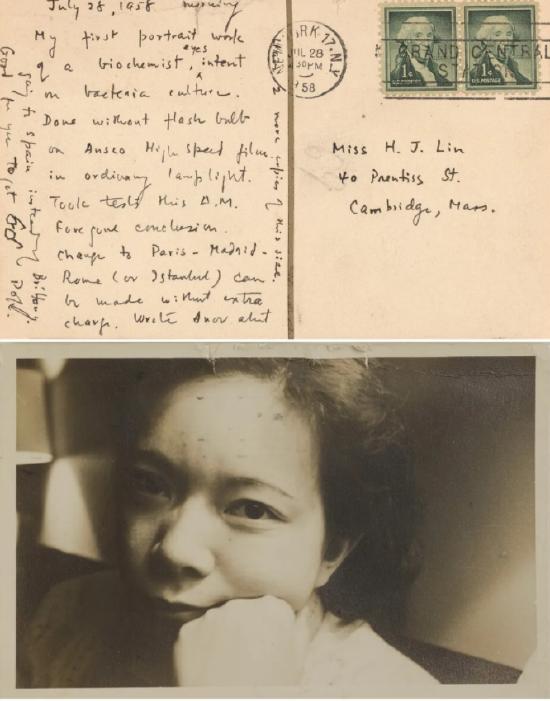 July 28, 1958 morning
My first portrait work
of a biochemist, eyes intent
on bacteria culture.
Done without flash bulb
on Ansco High Speed film
in ordinary lamplight.
Took tests this A.M.
Foregone conclusion.
Change to Paris - Madrid -
Rome (or Istanbul) can
be made without extra
charge. Wrote
going to Spain instead of Brittany.
Good for you to get
2 more copies of this side.
YORK 17, N.Y.
JUL 28
30PM
1958
GRAND CENTRAL
1¢ 1¢
U.S. POSTAGE U.S. POSTAGE
Miss H. J. Lin
40 Prentiss St.
Cambridge, Mass.